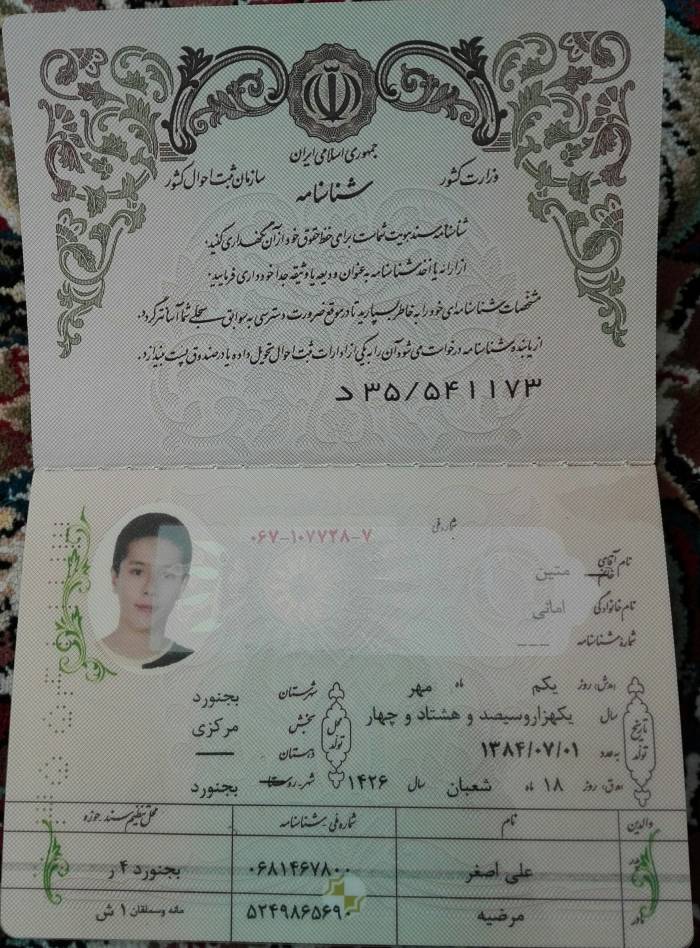 جمهوری اسلامی ایران
وزارت کشور
سازمان ثبت احوال کشور
شناسنامه
شناسنامه سند هویت شماست برای حفظ حقوق خود از آن نگهداری کنید.
از ارائه یا اخذ شناسنامه به عنوان ودیعه یا وثیقه جداً خودداری فرمایید.
مشخصات شناسنامه‌ای خود را به خاطر بسپارید تا در موقع ضرورت دسترسی به سوابق سجلی شما آسانتر گردد.
از یابنده شناسنامه درخواست می‌شود آن را به یکی از ادارات ثبت احوال تحویل داده یا در صندوق پست بیندازد.
د ۳۵/۵۴۱۱۷۳
شماره ملی ۰۶۷-۱۰۷۷۲۸-۷
نام آقای خانم متین
نام خانوادگی امانی
شماره شناسنامه ---
تاریخ تولد
ه‍.ش: روز یکم ماه مهر
سال یکهزاروسیصد و هشتاد و چهار
به عدد ۱۳۸۴/۰۷/۰۱
ه‍.ق: روز ۱۸ ماه شعبان سال ۱۴۲۶
محل تولد
شهرستان بجنورد
بخش مرکزی
دهستان ——
شهر-روستا بجنورد
والدین نام شماره ملی شناسنامه محل تنظیم سند حوزه
پدر علی اصغر ۰۶۸۱۴۶۷۸۰۰ بجنورد ۴ ر
مادر مرضیه ۵۲۴۹۸۶۵۶۹۰ مانه وسملقان ۱ ش